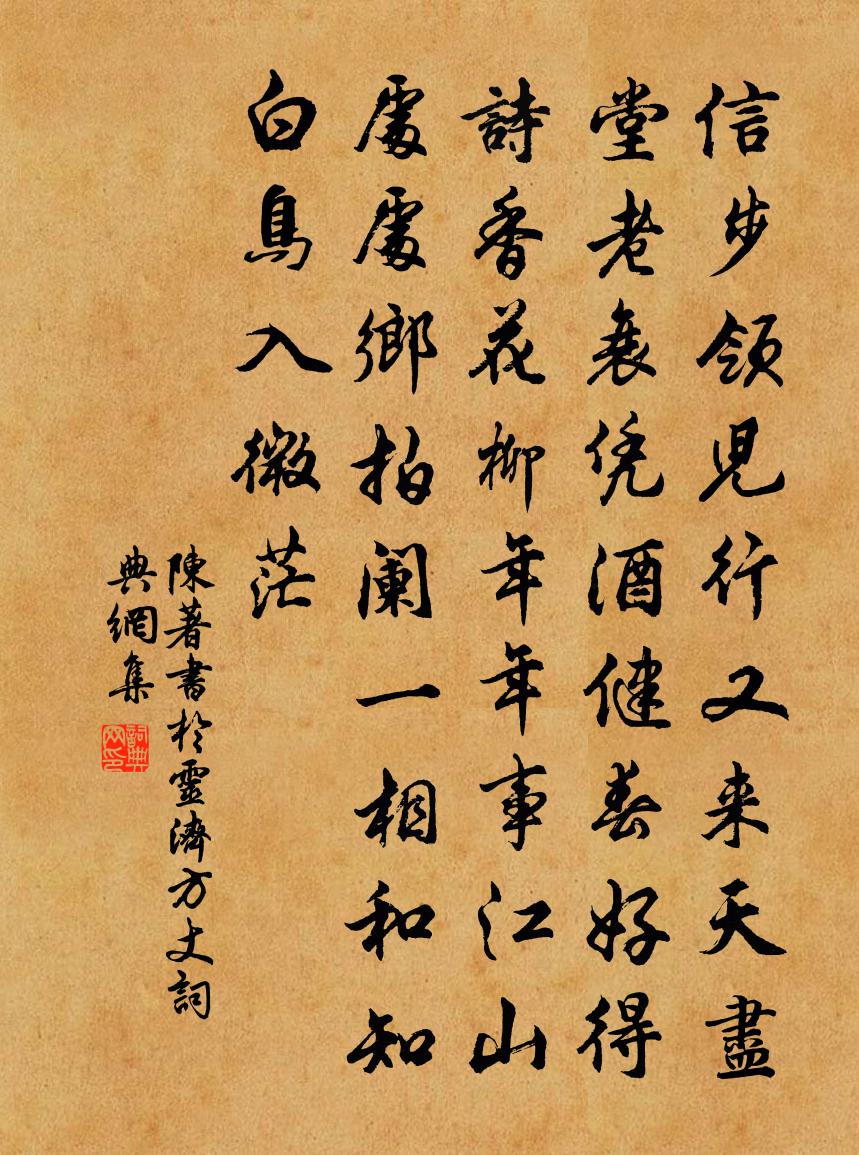 信步領児行又来天盡
堂老衰凭酒健春好得
詩香花柳年年事江山
處處鄉拍闌一相和知
白鳥入微茫
陳著書於靈濟方丈詞
典網集
詞典
网印